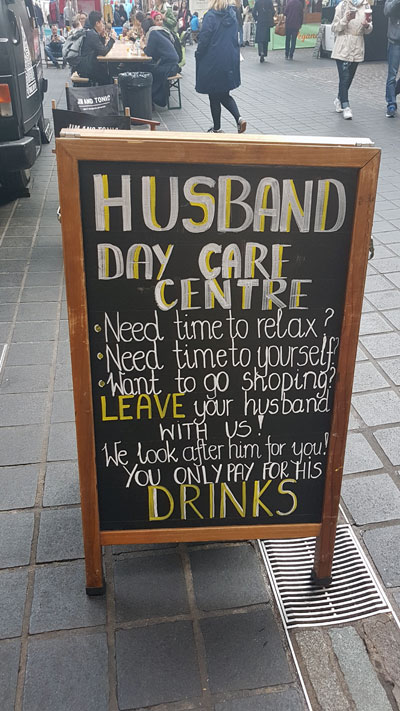 JIM AND TONIC
JIM AND TONIC
HUSBAND
DAY CARE
CENTRE
• Need time to relax?
• Need time to yourself?
• Want to go shoping?
LEAVE your husband
WITH US!
We look after him for you!
YOU ONLY PAY FOR HIS
DRINKS